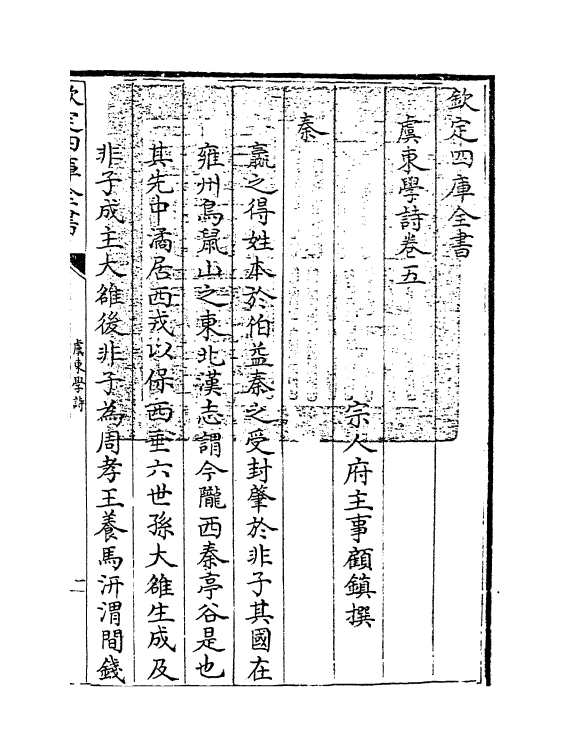 欽定四庫全書
虞東學詩卷五
宗人府主事顧鎮撰
秦
嬴之得姓本於伯益秦之受封肇於非子其國在
雍州鳥鼠山之東北漢志謂今隴西秦亭谷是也
其先中潏居西戎以保西垂六世孫大雒生成及
非子成主大雒後非子為周孝王養馬汧渭間錢
欽定四庫全書
虞東學詩